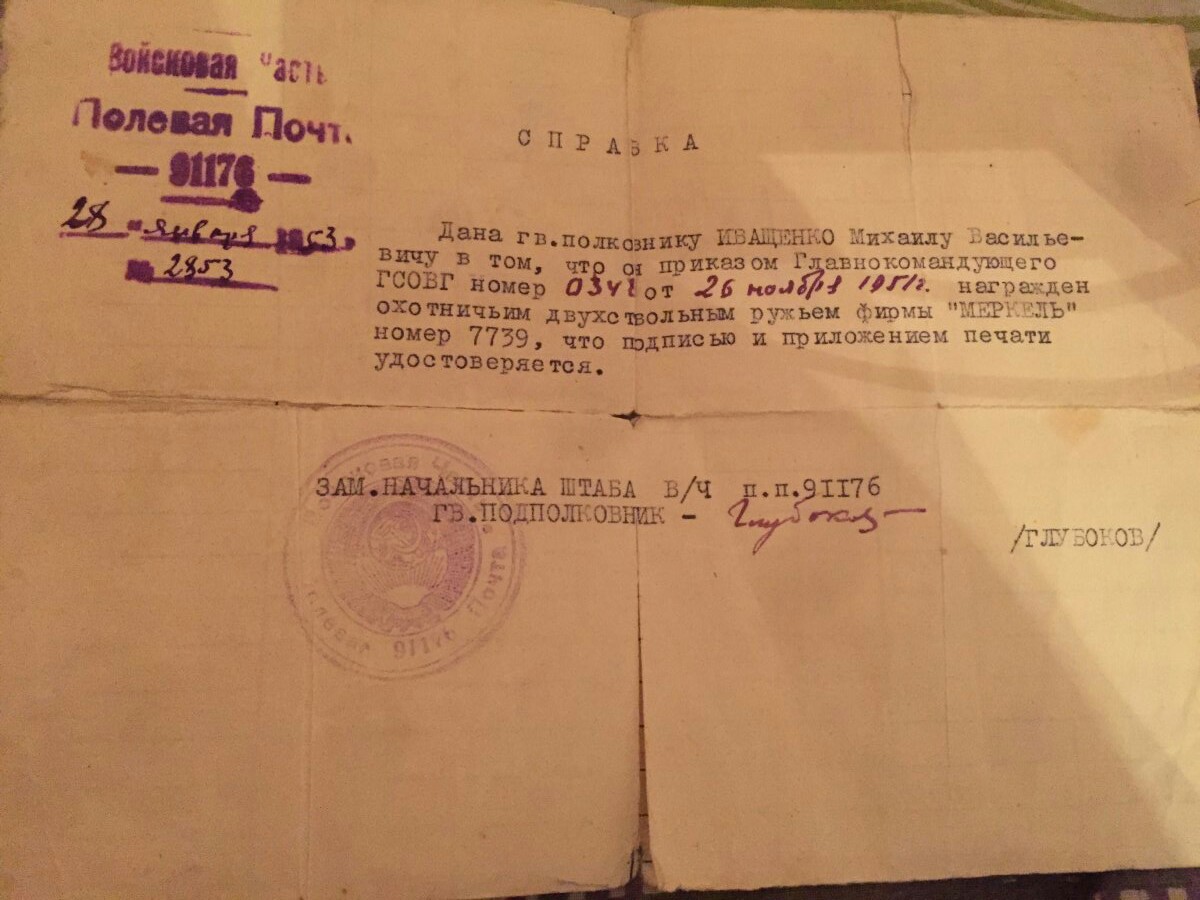 Войсковая Часть
Полевая Почт.
— 91176 —
28 " января 1953.
№ 2953
СПРАВКА
Дана гв.полковнику ИВАЩЕНКО Михаилу Василье-
вичу в том, что он приказом Главнокомандующего
ГСОВГ номер от 26 ноября 1951г. награжден
охотничьим двухствольным ружьем фирмы "МЕРКЕЛЬ"
номер 7739, что подписью и приложением печати
удостоверяется.
ЗАМ.НАЧАЛЬНИКА ШТАБА В/Ч п.п.91176
ГВ.ПОДПОЛКОВНИК - Глубоков
/ГЛУБОКОВ/
Войсковая Часть
Полевая 91176 Почта